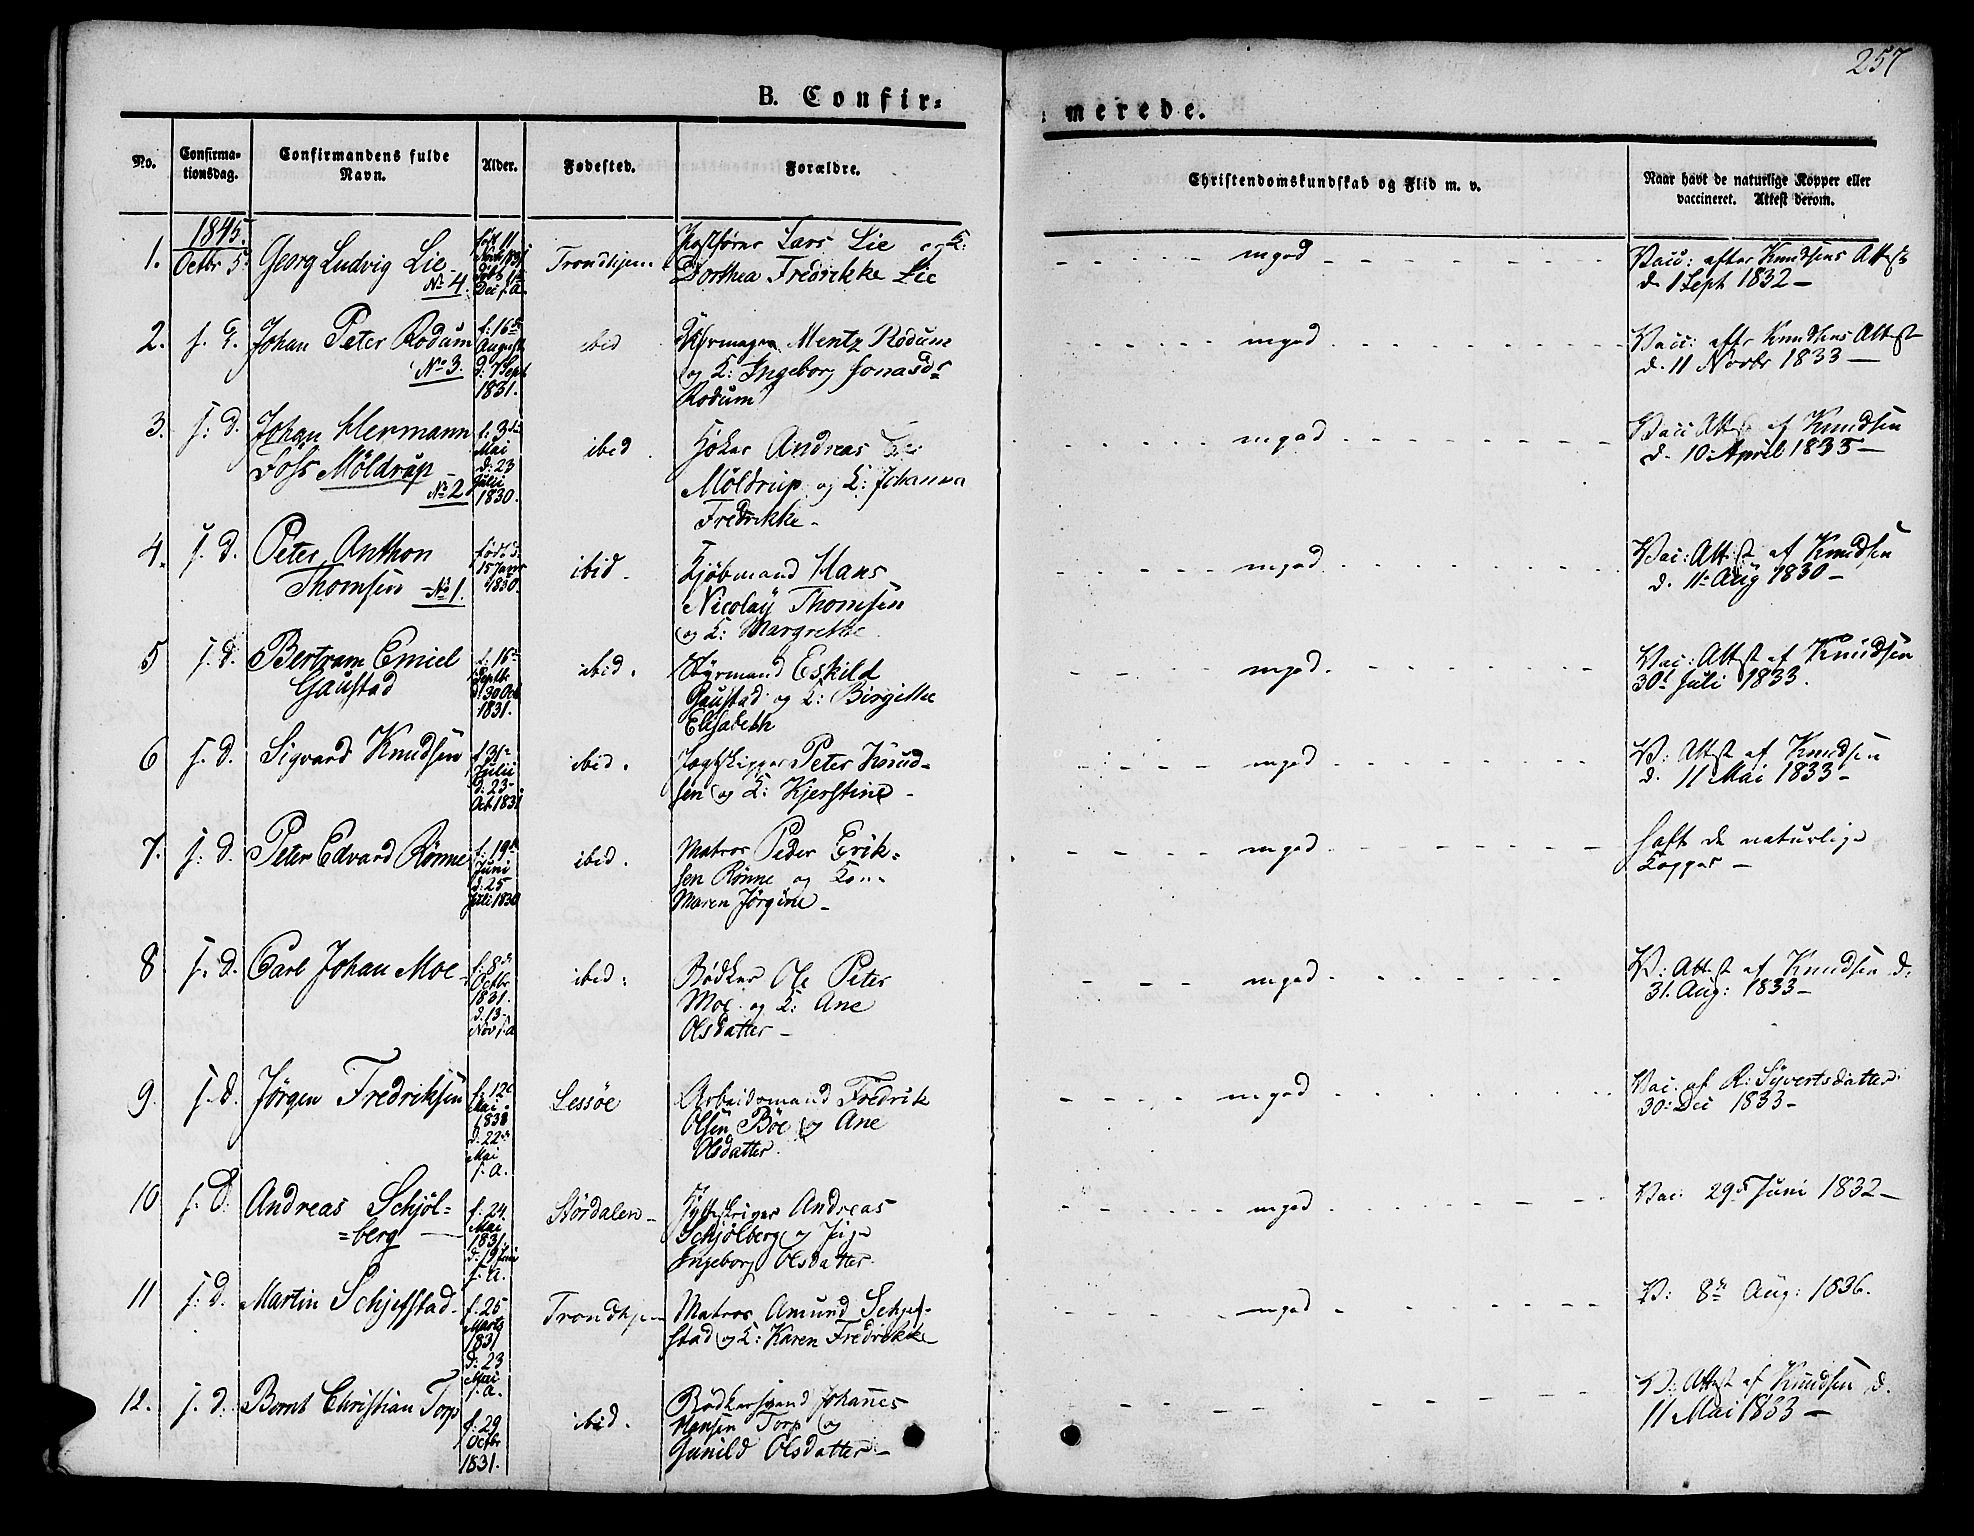 257
B. Confir-
merede.
No.
Confirma-
tionsdag.
Confirmandens fulde
Navn.
Alder.
Fødested.
Forældre.
Christendomskundskab og Flid m. v.
Naar havt de naturlige Kopper eller
vaccineret. Attest derom.
1845.
1. Octbr 5. Georg Ludvig Lie
No 4.
Trondhjem
Lars Lie og K:
Dorthea Fredrikke Lie
mgod
Vacc: efter Knudsens Attest
d. 1 Sept 1832 –
2. s. D. Johan Peter Rodum
No 3.
f: 16de
August
d. 7 Sept
1831.
ibid
Mentz Rodum
og K: Ingeborg Jonasdr
Rodum
mgod
Vacc: efter Knudsens Attest
d. 11 Novbr 1833 –
3. s: d. Johan Hermann
Foss Möldrup
No 2
f: 3die
Mai
d: 23
Julii
1830.
ibid.
Höker Andreas
Möldrup og K: Johanna
Fredrikke –
mgod
Vacc Attest af Knudsen
d. 10 April 1835 –
4. s. d. Peter Anthon
Thomsen No 1.
født d.
15 Janr
1830.
ibid.
Kjöbmand Hans
Nicolay Thomsen
og K: Margrethe
mgod
Vac: Attest af Knudsen
d. 11te Aug 1830 –
5 s. d. Bertram Emiel
Gaustad
f: 16de
Septbr
d. 30 Oct
1831.
ibid.
Styrmand Eskild
Gaustad og K: Birgithe
Elisabeth
mgod.
Vac: Attest af Knudsen
30te Juli 1833.
6 s. d. Sigvard Knudsen
f. 31te
Julii
d: 23
Oct 1831
ibid.
Jagtskipper Peter Knud-
sen og K: Kjerstine –
mgod
V: Attest af Knudsen
d. 11 Mai 1833 –
7. s: d. Peter Edvard Rönne
f. 19de
Juni
d. 25
Juli 1830
ibid.
Matros Peder Erik-
sen Rönne og Kon-
Maren Jörgine –
mgod
haft de naturlige
Kopper –
8 s. d. Carl Johan Moe
f: 8de
Octbr
1831.
d. 13
Nov s. a.
ibid:
Bödker Ole Peter
Moe og K: Ane
Olsdatter –
mgod
V: Attest af Knudsen d.
31. Aug: 1833 –
9. s. d. Jörgen Fredriksen
f. 12te
Mai
d. 22de
Mai
s. a.
Lessöe
Arbeidsmand Fredrik
Olsen Böe og Ane
Olsdatter.
mgod
Vac. af R: Syvertsdatter
30 Dec 1833 –
10 s. D. Andreas Schjöl-
=berg –
f. 24.
Mai
1831
d: 19 Juni
s. a.
Stördalen –
Andreas
Schjölberg og Pige
Ingeborg Olsdatter.
mgod
Vac: 29de Juni 1832 –
11 s: d. Martin Schjefstad
f. 25
Marts
1831
d: 23
Mai
s. a.
Trondhjem
Matros Amund Schjef-
stad og K: Karen Fredrikke
mgod
V: 8de Aug: 1836.
12. s. d. Bernt Christian Torp
f: 29
Octbr
1831.
ibid.
Bödkersvend Johannes
Hansen Torp og
Gunild Olsdatter –
V: Attest af Knudsen d.
11 Mai 1833 –